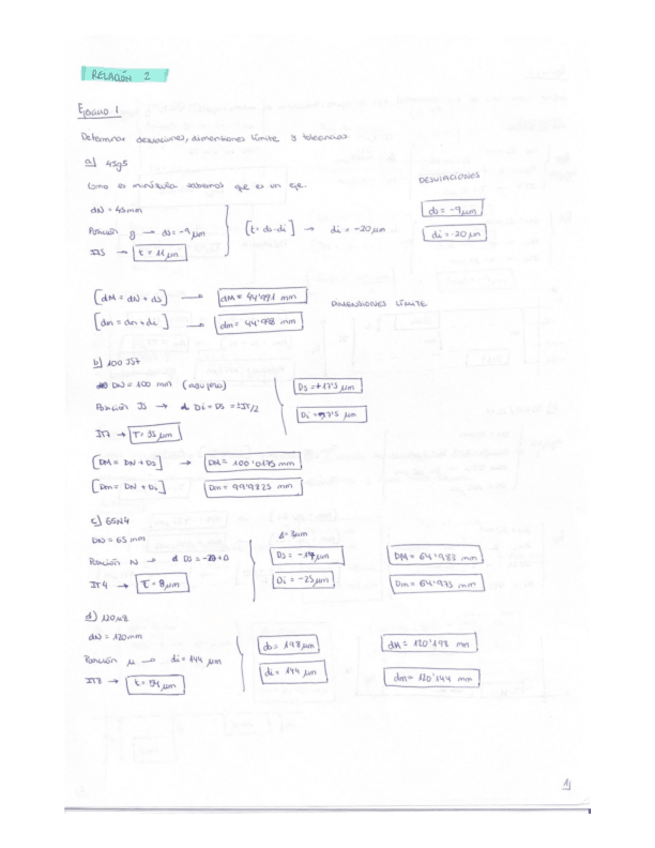 RELACIÓN 2
Ejercicio 1
Determinar desviaciones, dimensiones límite y tolerancias
a) 45g5
Como es minúscula sabemos que es un eje.
DESVIACIONES
dN = 45mm
ds = -9 μm
Posición g → ds = -9 μm
[t = ds - di] → di = -20 μm
di = -20 μm
IT5 → t = 11 μm
[dM = dN + ds] → dM = 44'991 mm
DIMENSIONES LÍMITE
[dm = dn + di] → dm = 44'998 mm
b) 100 JS7
DN = 100 mm (agujero)
Ds = +17'5 μm
Posición JS → Di = Ds = ±IT/2
IT7 → T = 35 μm
[DM = DN + Ds] → DM = 100'0175 mm
[Dm = DN + Di] → Dm = 99'9825 mm
c) 65N4
DN = 65 mm
Δ = 3μm
Posición N → Ds = -20 + Δ
Ds = -17 μm
DM = 64'983 mm
IT4 → T = 8 μm
Di = -25 μm
Dm = 64'975 mm
d) 120u8
dN = 120mm
ds = 198 μm
dM = 120'198 mm
Posición u → di = 144 μm
di = 144 μm
dm = 120'144 mm
IT8 → t = 54 μm
1